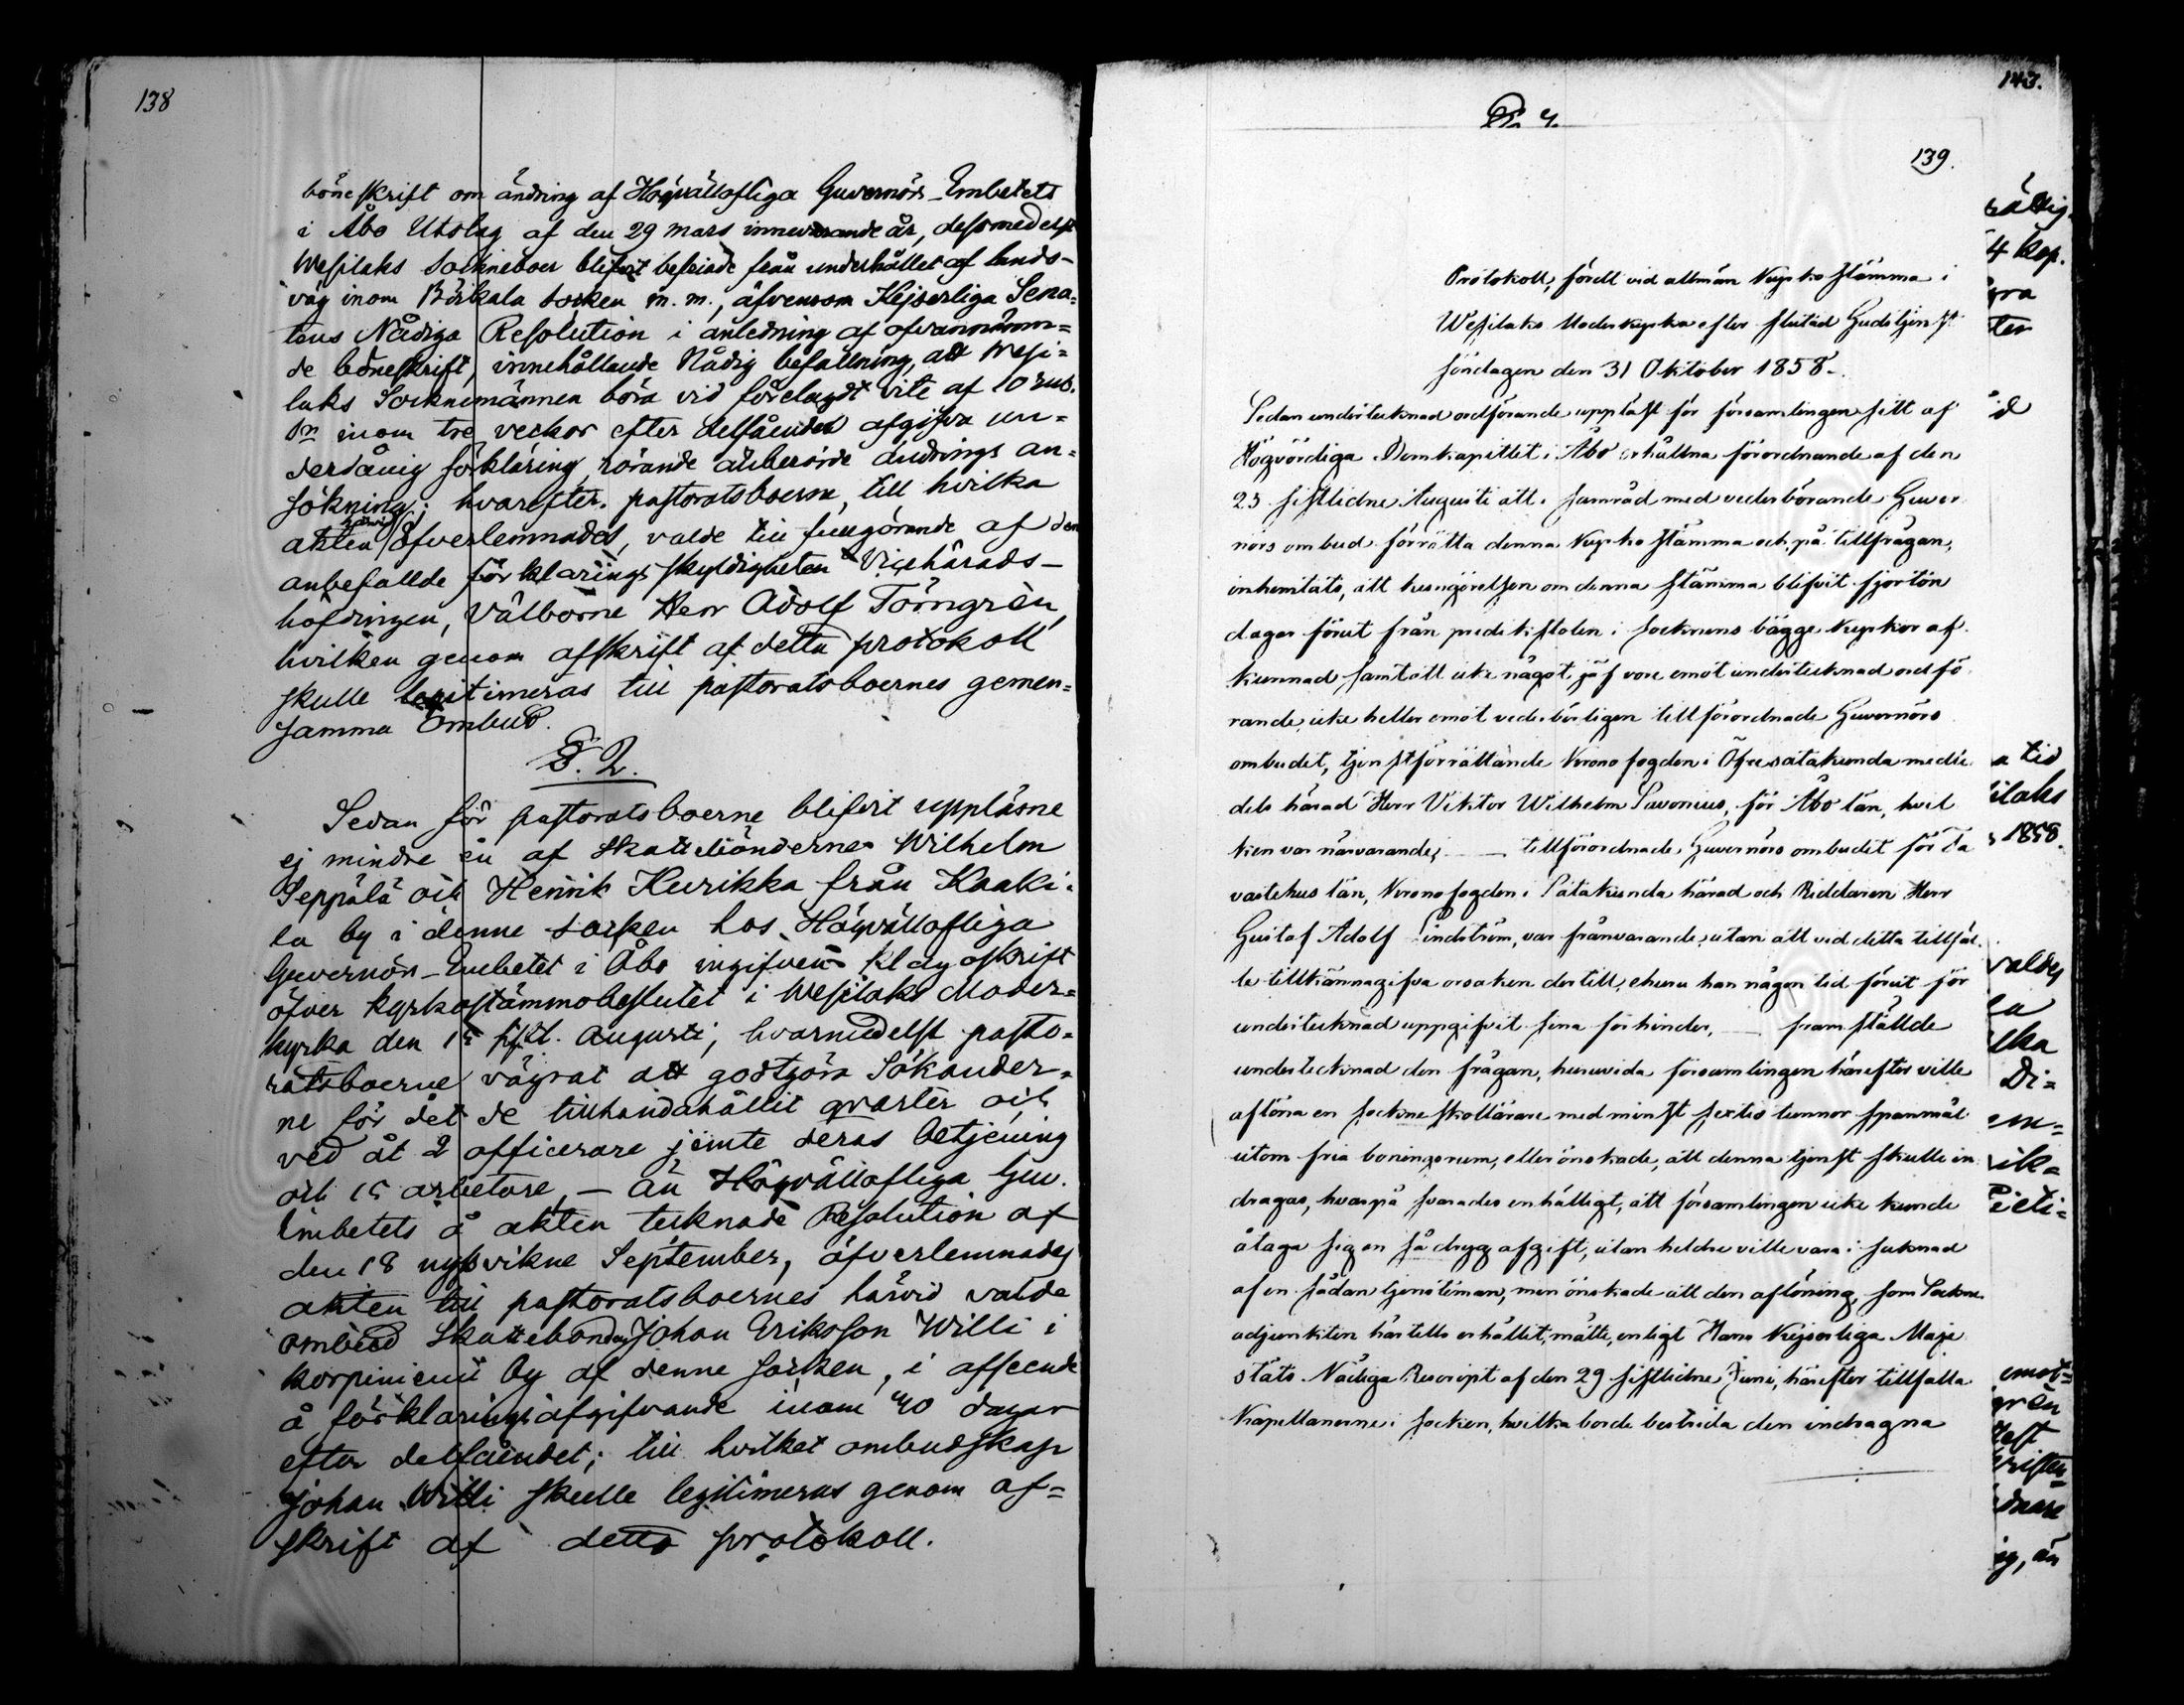 138
böneskrift om ändring af Högvällofliga Guvernörs-Embetets
i Åbo Utslag af den 29 mars innevarande år, dessmedelst
Wesilaks Sockneboer blifvit befriade från underhållet af lands-
väg inom Birkala socken m. m., äfvensom Kejserliga Sena=
tens Nådiga Resolution i anledning af ofvannämn=
de böneskrift, innehållande Nådig befallning, att Wesi=
laks Socknemännen böra vid förelagdt vite af 10 rub.
Sr inom tre veckor efter delfåendet afgifva un=
derdånig förklaring rörande åberörde ändrings an=
sökning; hvarefter pastoratsboerne, till hvilka
akten härvid öfverlemnades, valde till fullgörande af den
anbefallde förklarings skyldigheten Vicehärads-
höfdingen, Välborne Herr Adolf Törngrèn,
hvilken genom afskrift af detta protokoll
skulle legitimeras till pastoratsboernes gemen=
samma Ombud.
§. 2.
Sedan för pastoratsboerne blifvit uppläsne
ej mindre än af Skattebönderne Wilhelm
Seppälä och Henrik Kurikka från Kaaki=
la by i denne socken hos Högvällofliga
Guvernörs-Embetet i Åbo ingifven klagoskrift
öfver kyrkostämmobeslutet i Wesilaks Moder=
kyrka den 15 sistl. Augusti, hvarmedelst pasto=
ratsboerne vägrat att godtgöra Sökander=
ne för det de tillhandahållit qvarter och
ved åt 2 officerare jemte deras betjening
och 15 arbetare, — än Högvällofliga Guv.
Embetets å akten tecknade Resolution af
den 18 nyssvikne September, öfverlemnades
akten till pastoratsboernes härvid valde
ombud Skattebonden Johan Eriksson Willi i
korpiniemi by af denne socken, i afseende
å förklarings afgifvande inom 40 dagar
efter delfåendet; till hvilket ombudskap
Johan Willi skulle legitimeras genom af=
skrift af detta protokoll.
143.
139.
Protokoll, fördt vid allmän Kyrkostämma i
Wesilaks Moderkyrka efter slutad Gudstjenst
söndagen den 31 Oktober 1858.
Sedan undertecknad ordförande uppläst för församlingen sitt af
Högvördiga Domkapitlet i Åbo erhållna förordnande af den
23 sistlidne Augusti att i samråd med vederbörande Guver
nörs ombud förrätta denna Kyrkostämma och, på tillfrågan,
inhemtats, att kungörelsen om denna stämma blifvit fjorton
dagar förut från predikstolen i socknens bägge kyrkor af
kunnad samt att icke något jäf vore emot undertecknad ordfö
rande, icke heller emot vederbörligen tillförordnade Guvernörs
ombudet, tjenstförrättande Kronofogden i Öfresatakunda medle
dels härad Herr Viktor Wilhelm Savonius, för Åbo län, hvil
ken var närvarande; — tillförordnade Guvernörs ombudet för Ta
vastehus län, Kronofogden i Satakunda härad och Riddaren Herr
Gustaf Adolf Lindström, var frånvarande, utan att vid detta tillfäl
le tillkännagifva orsaken dertill, ehuru han någon tid förut för
undertecknad uppgifvit sina förhinder, — framställde
undertecknad den frågan, huruvida församlingen härefter ville
aflöna en sockneskollärare med minst sextio tunnor spannmål
utom fria boningsrum, eller önskade, att denna tjenst skulle in
dragas, hvarpå svarades enhälligt, att församlingen icke kunde
åtaga sig en så dryg afgift, utan heldre ville vara i saknad
af en sådan tjensteman, men önskade att den aflöning, som Sockne
adjunkten härtills erhållit, måtte, enligt Hans Kejserliga Maje
stäts Nådiga Rescript af den 29 sistlidne Juni, härefter tillfalla
Kapellanerne i socken, hvilka borde bestrida den indragna
4 kop.
a tid
1858.
valdes